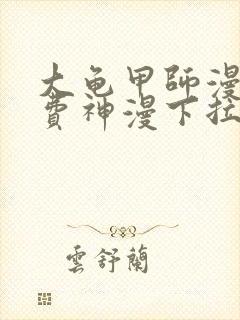 大龟甲師漫
費神漫下拉
雲舒蘭